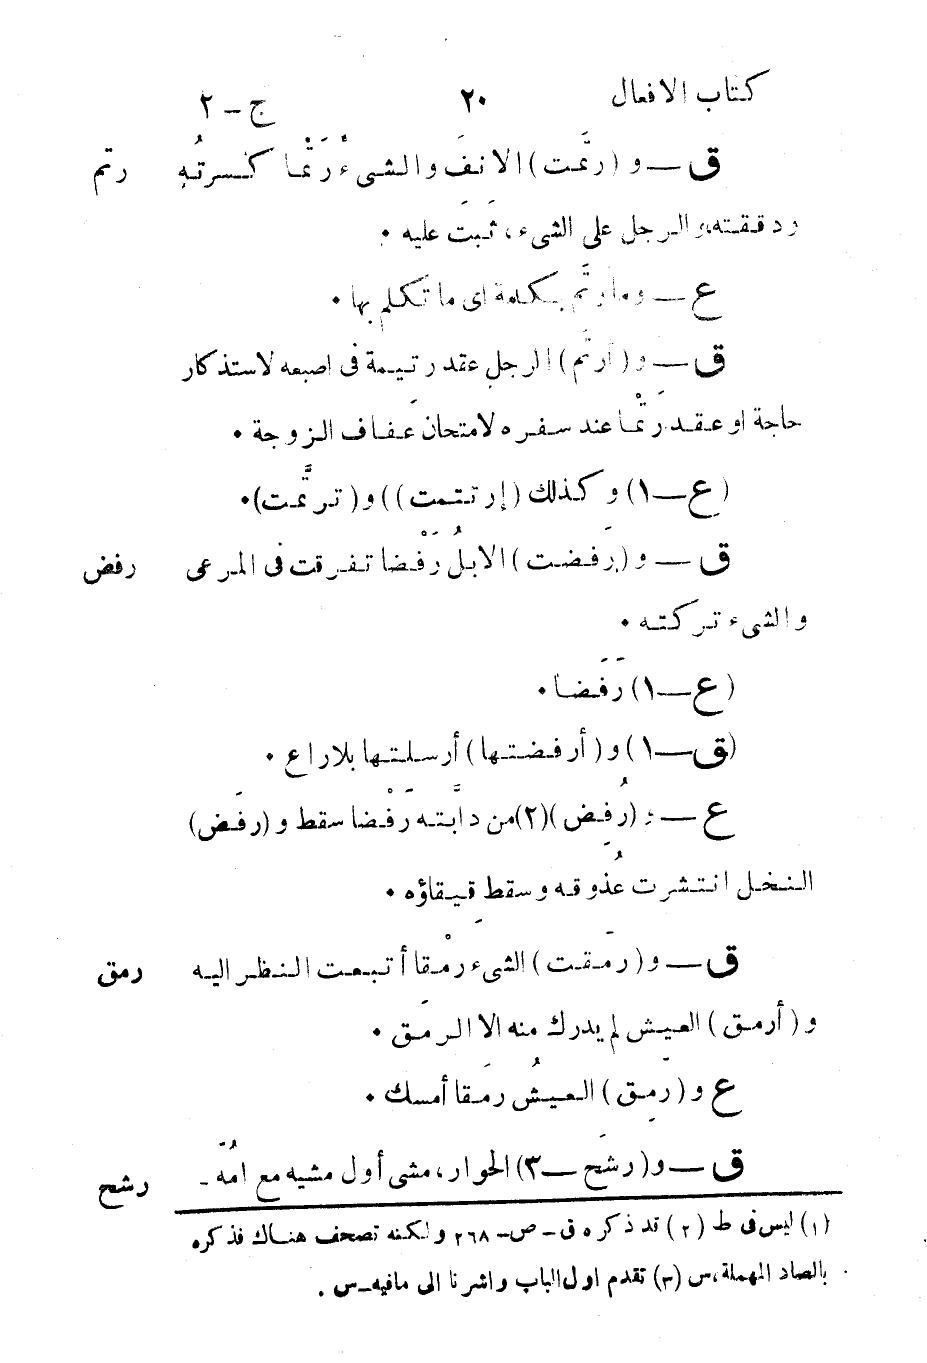 كتاب الافعال ٢٠ ج – ٢
ق — و (رتَمت) الانفَ والشىءَ رَتْما كسرتُه رتم
ودققته، والرجل على الشىء، ثَبَت عليه •
ع — وما رتَّم بكلمة اى ما تَكلم بها •
ق — و (أرتَم) الرجل عقد رتيمة فى اصبعه لاستذكار
حاجة او عقد رَتْما عند سفره لامتحان عَفاف الزوجة •
(ع — ١) وكذلك (إرتتمت)) و (ترتَّمت) •
ق — و (رَفضت) الابلُ رَفْضا تفرقت فى المرعى رفض
والشىء تركته •
(ع — ١) رَفَضا •
(ق — ١) و (أرفضتها) أرسلتها بلا راع •
ع — و (رُفِض) (٢) من دابَّته رَفْضا سقط و (رفَض)
النخل انتشرت عُذوقه وسقط قِيقاؤه •
ق — و (رمَقت) الشىء رمْقا أتبعت النظر اليه رمق
و (أرمق) العيش لم يدرك منه الا الرمَق •
ع و (رمِق) العيشُ رمَقا أمسك •
ق — و (رشَح — ٣) الحوار، مشى أول مشيه مع امُّه - رشح
(١) ليس فى ط (٢) قد ذكره ق - ص - ٢٦٨ ولكنه تصحف هناك فذكره
بالصاد المهملة، س (٣) تقدم اول الباب واشرنا الى مافيه - س .